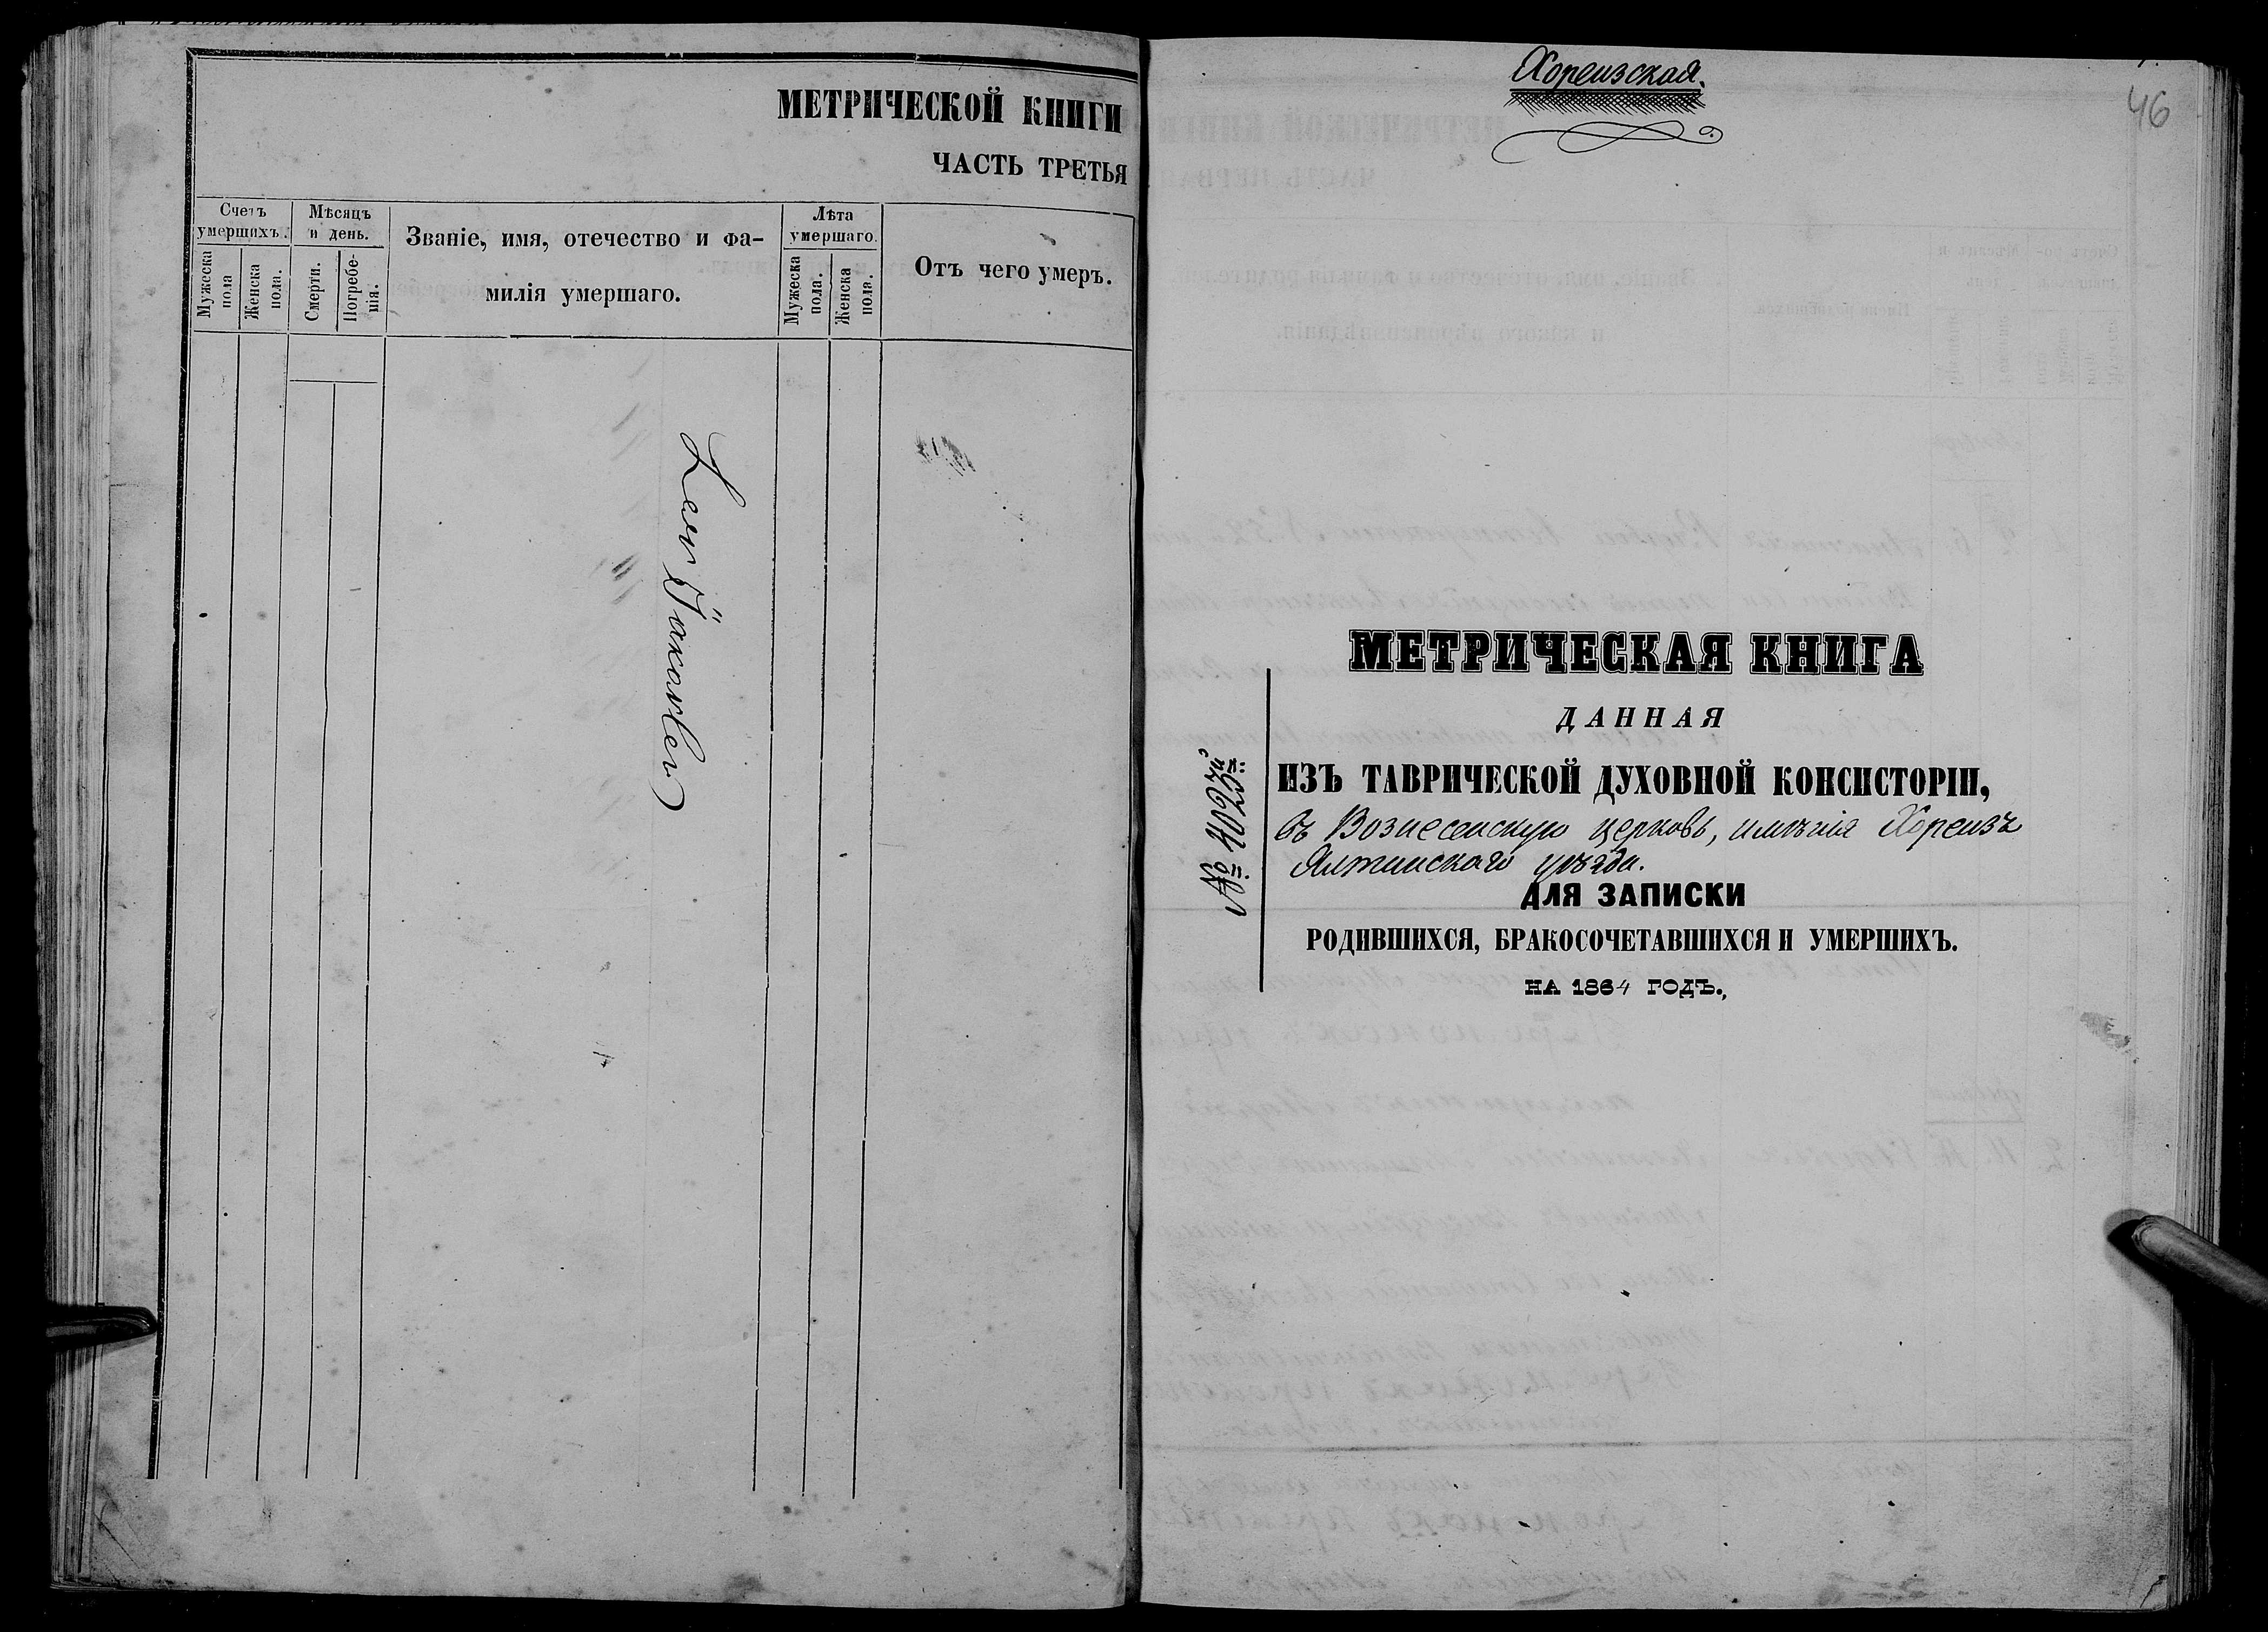 МЕТРИЧЕСКОЙ КНИГИ
ЧАСТЬ ТРЕТЬЯ
Счетъ умершихъ.
Мужеска пола
Женска пола.
Мѣсяцъ и день.
Смерти.
Погребе-
нія.
Званіе, имя, отечество и фа-
милія умершаго.
Лѣта умершаго.
Мужеска пола.
Женска пола.
Отъ чего умеръ.
Хореизская.
46
МЕТРИЧЕСКАЯ КНИГА
ДАННАЯ
ИЗЪ ТАВРИЧЕСКОЙ ДУХОВНОЙ КОНСИСТОРІИ,
въ Вознесенскую церковь, имѣнія Хореизъ
Ялтинскаго уѣзда.
ДЛЯ ЗАПИСКИ
РОДИВШИХСЯ, БРАКОСОЧЕТАВШИХСЯ И УМЕРШИХЪ.
НА 1864 ГОДЪ.